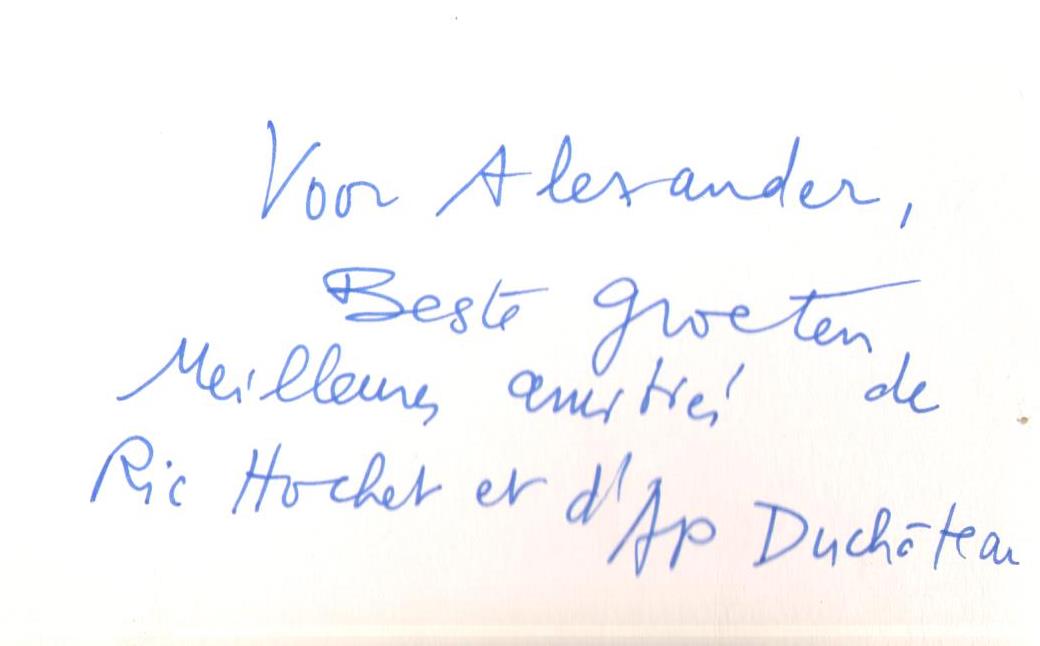 Voor Alexander,
Beste groeten,
Meilleures amitiés de
Ric Hochet et d'Ap Duchâteau